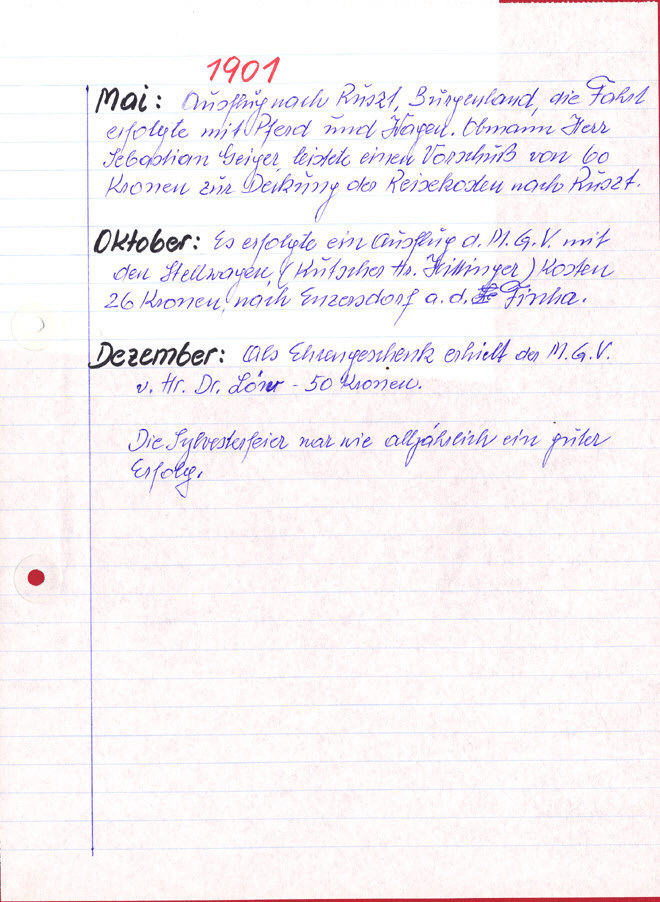 1901
Mai: Ausflug nach Ruszt, Burgenland, die Fahrt
erfolgte mit Pferd und Wagen. Obmann Herr
Sebastian Geiger leistete einen Vorschuß von 60
Kronen zur Deckung der Reisekosten nach Ruszt.
Oktober: Es erfolgte ein Ausflug d. M.G.V. mit
den Stellwagen (Kutscher Hr. Hittinger) Kosten
26 Kronen, nach Enzersdorf a.d. Fischa.
Dezember: Als Ehrengeschenk erhielt der M.G.V.
v. Hr. Dr. Löw - 50 Kronen.
Die Sylvesterfeier war wie alljährlich ein guter
Erfolg.